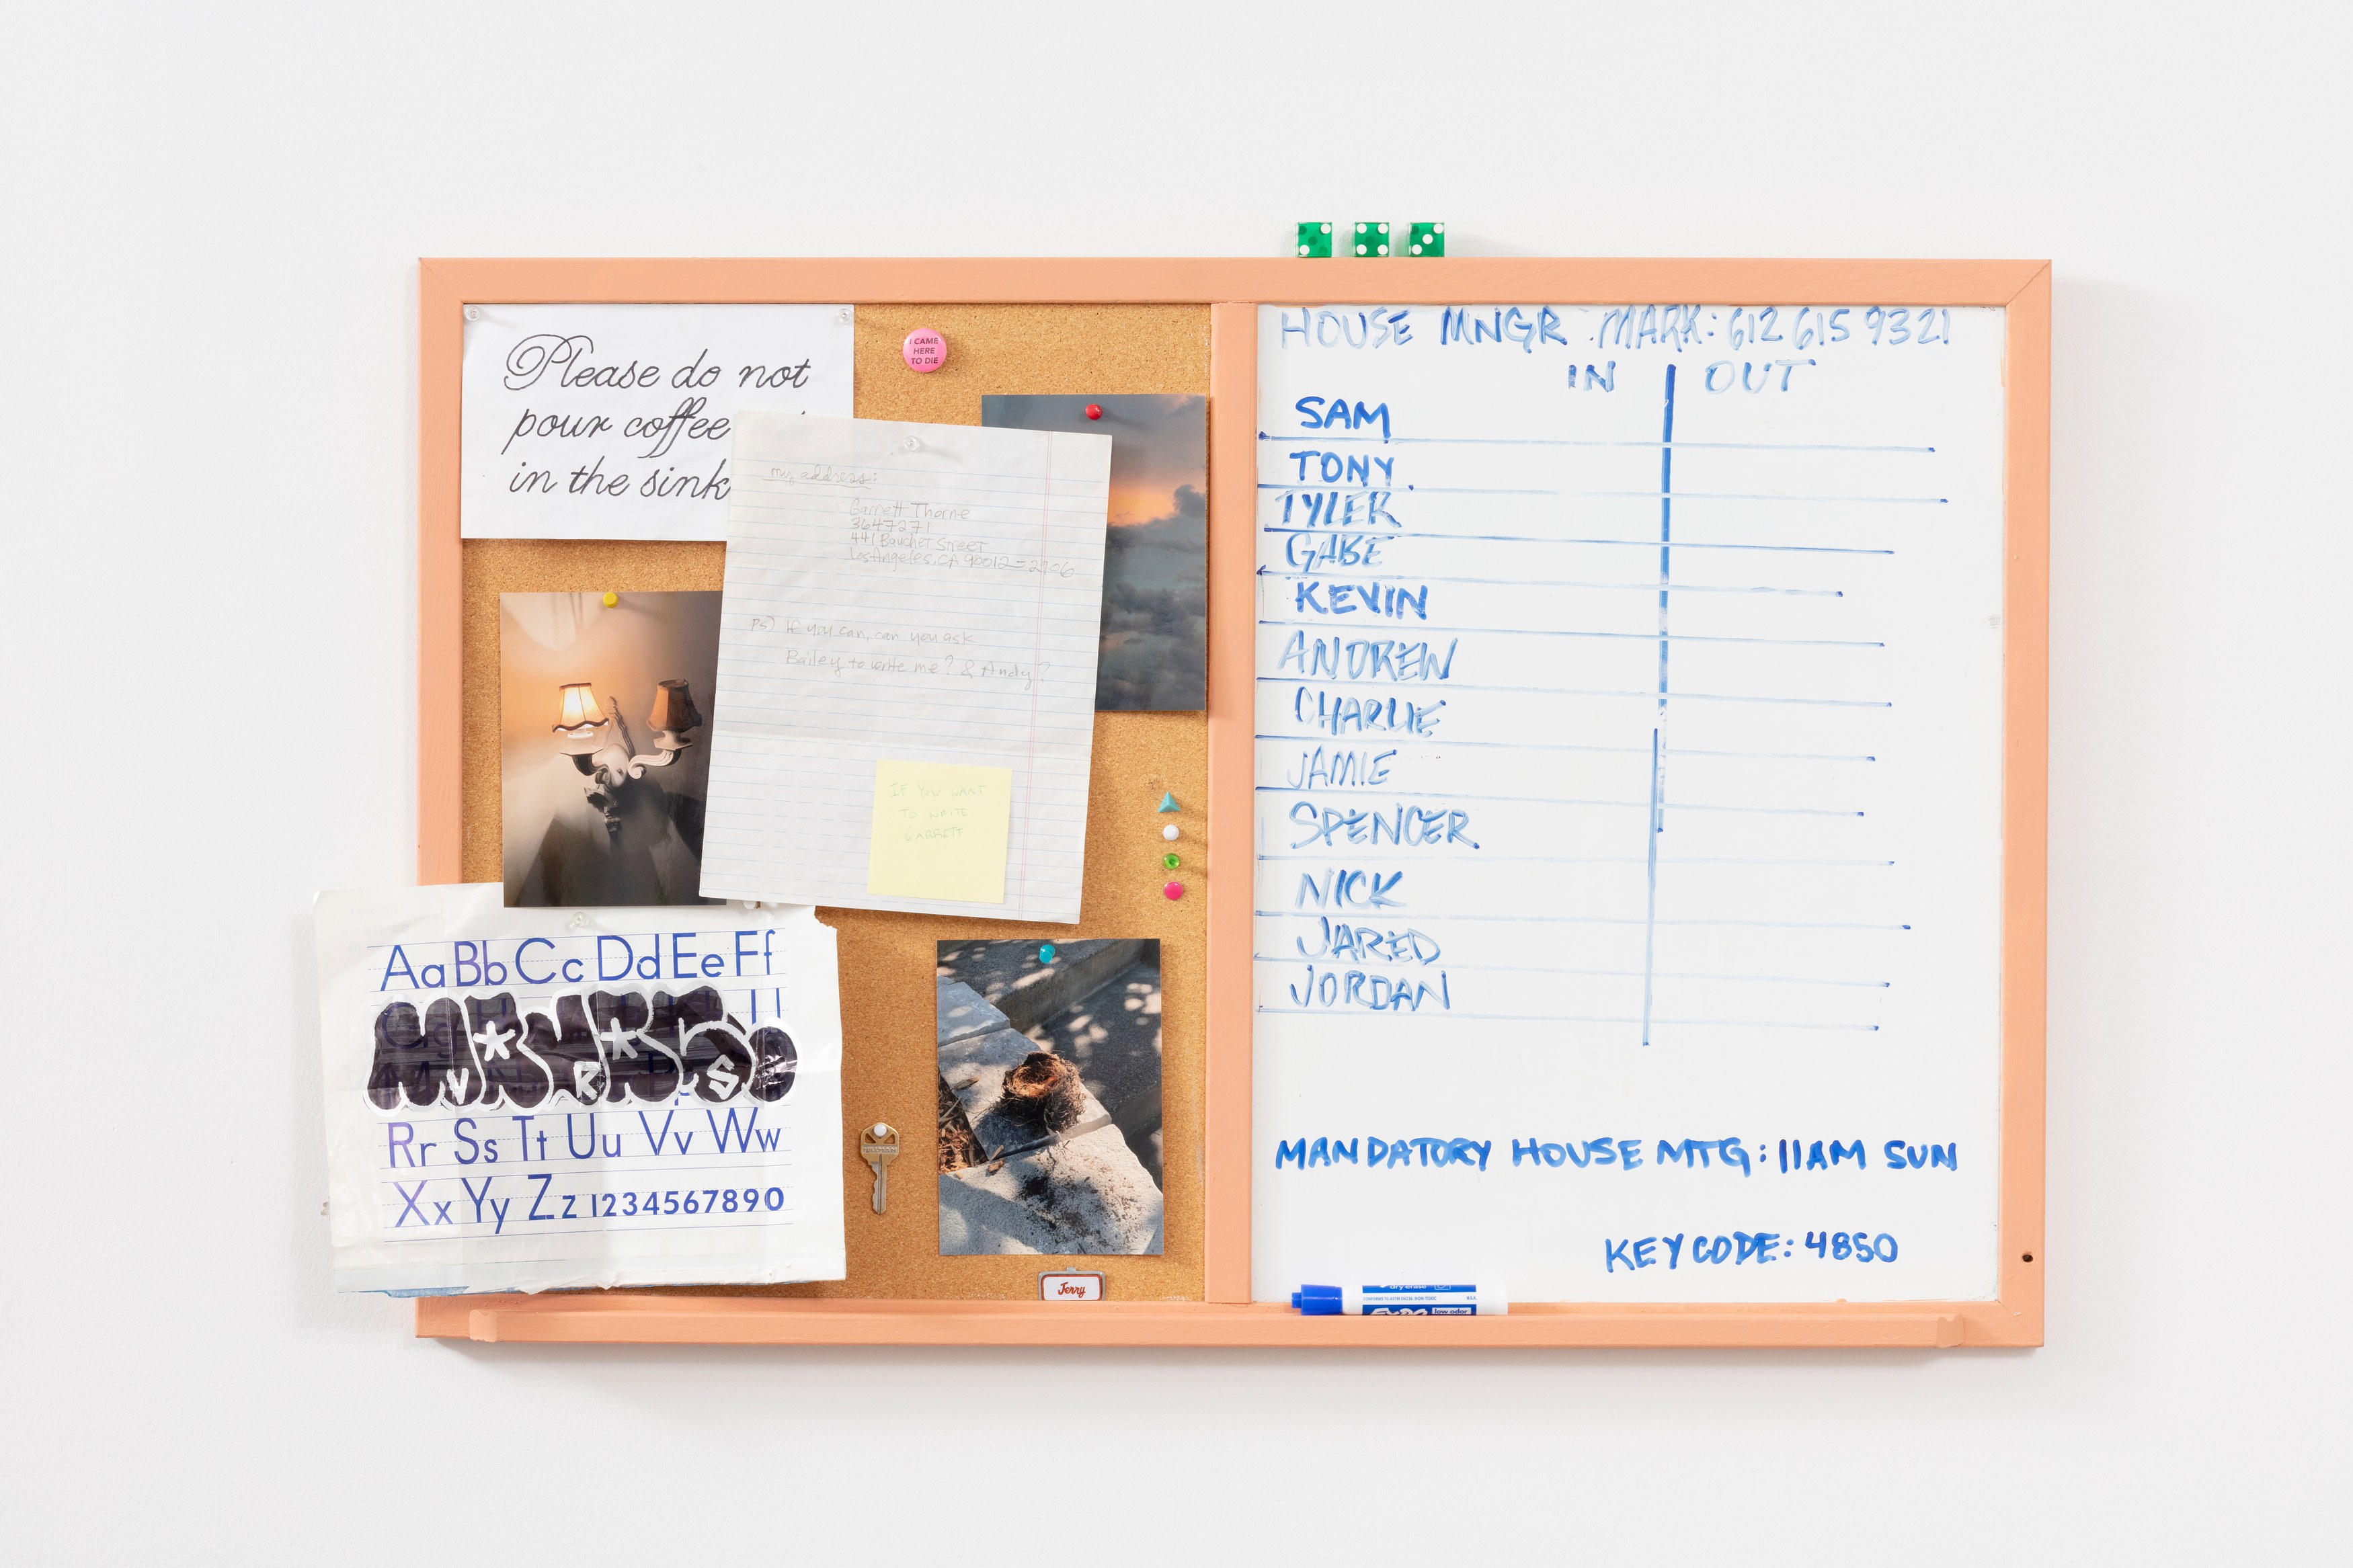 Please do not
pour coffee
in the sink
I CAME
HERE
TO DIE
my address:
Garrett Thorne
3647271
441 Bauchet Street
Los Angeles, CA 90012-2906
PS) If you can, can you ask
Bailey to write me? & Andy?
IF YOU WANT
TO WRITE
GARRETT
Aa Bb Cc Dd Ee Ff
Rr Ss Tt Uu Vv Ww
Xx Yy Zz 1234567890
Jerry
HOUSE MNGR MARK: 612 615 9321
IN OUT
SAM
TONY
TYLER
GABE
KEVIN
ANDREW
CHARLIE
JAMIE
SPENCER
NICK
JARED
JORDAN
MANDATORY HOUSE MTG: 11AM SUN
KEY CODE: 4850
EXPO low odor